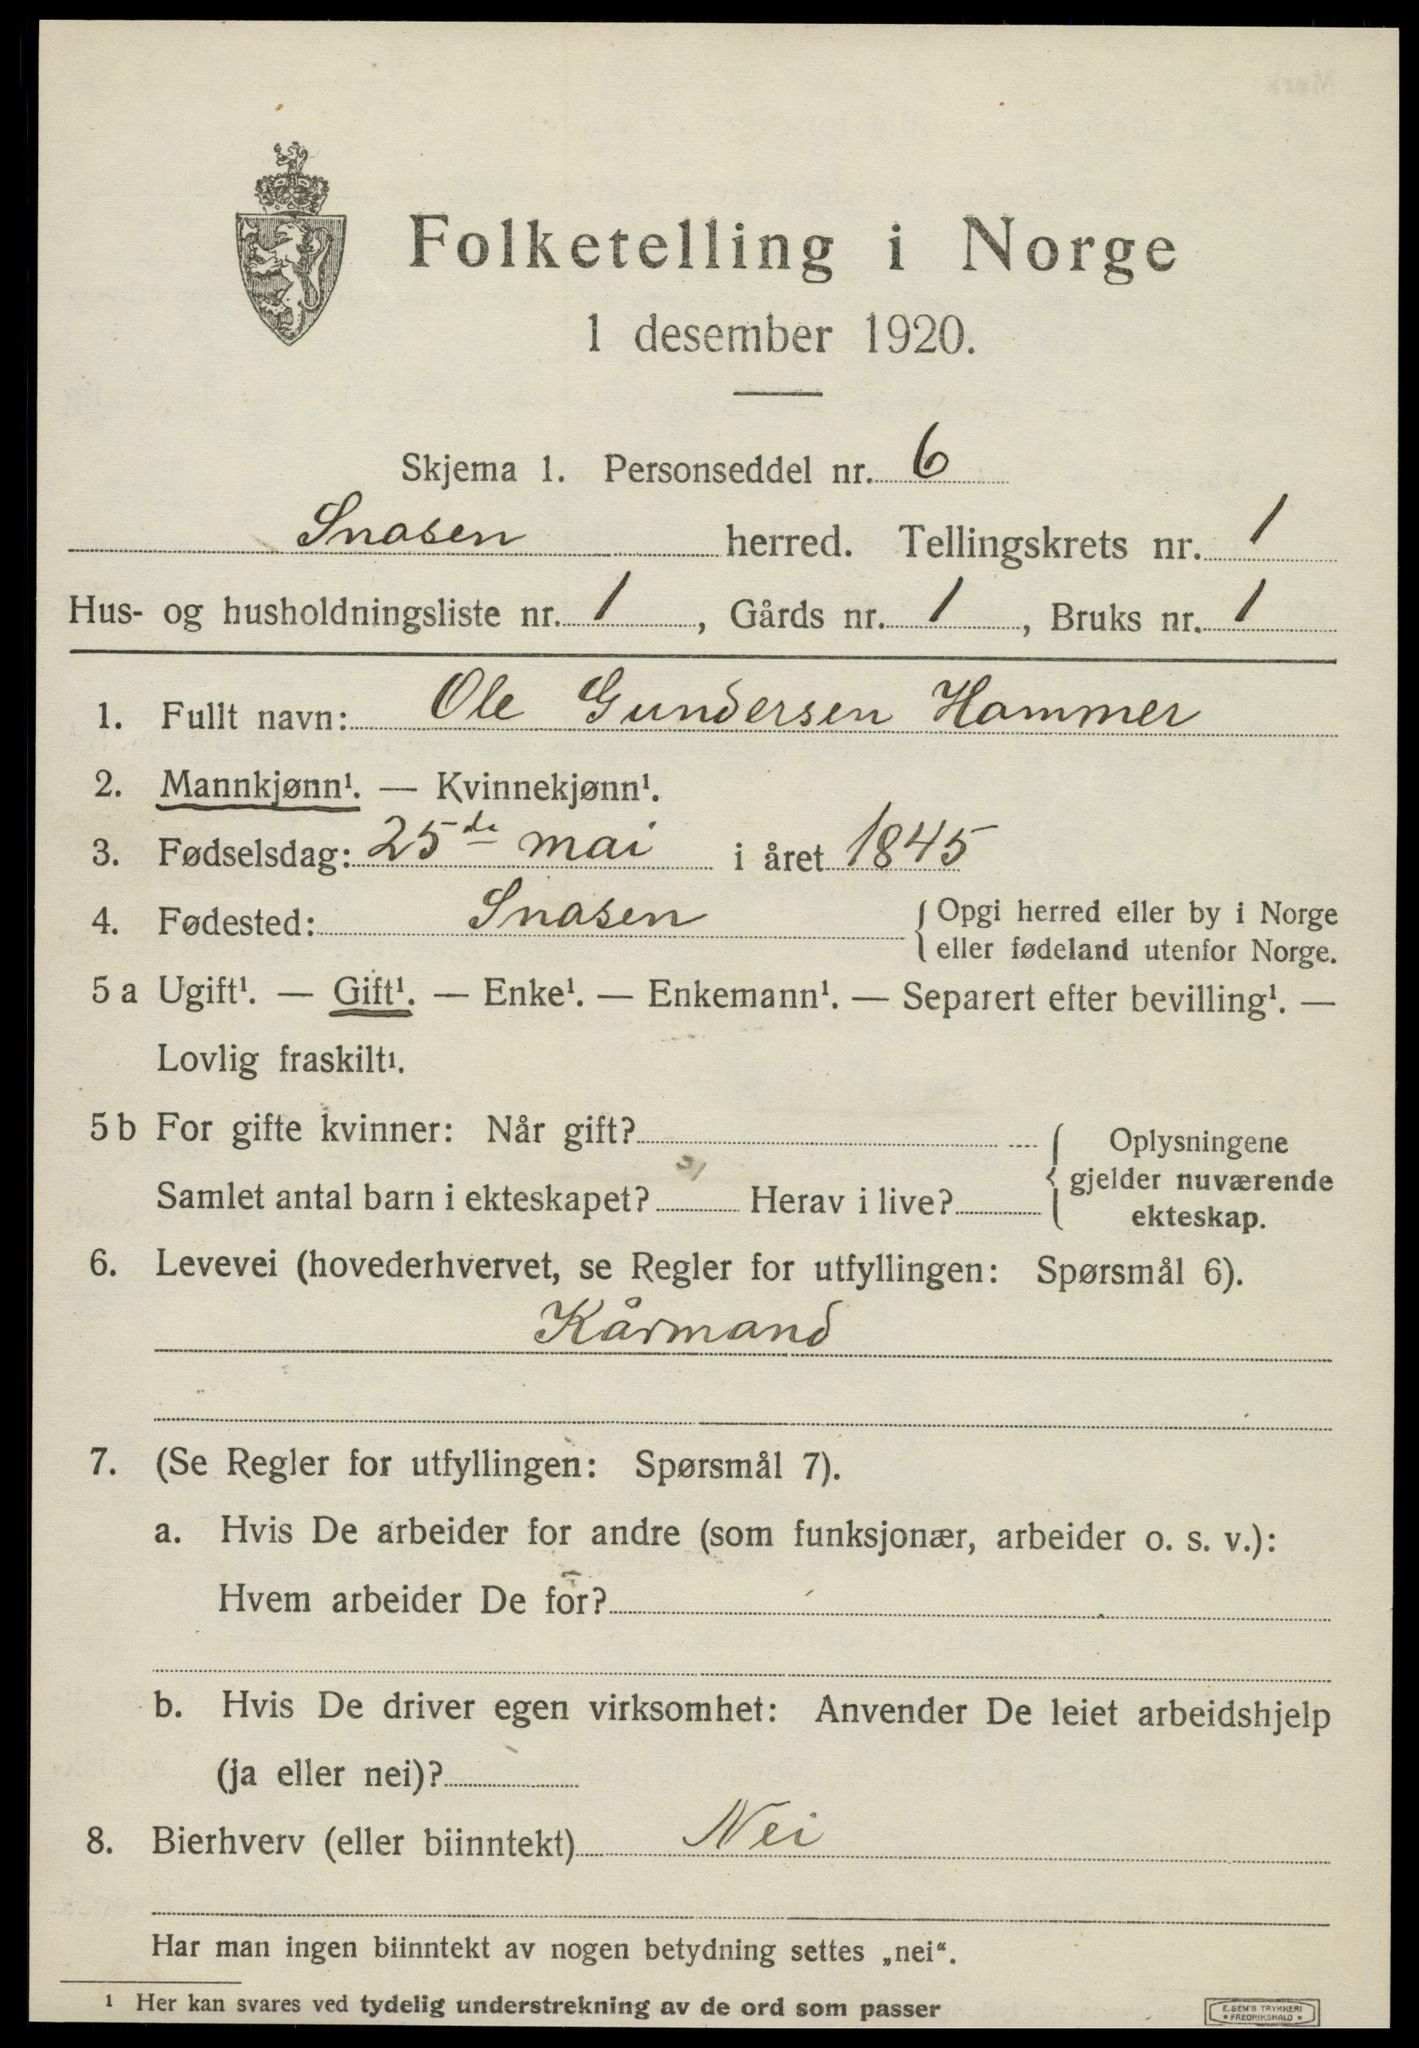 Folketelling i Norge
1 desember 1920.
Skjema 1. Personseddel nr. 6
Snåsen herred. Tellingskrets nr. 1
Hus- og husholdningsliste nr. 1, Gårds nr. 1, Bruks nr. 1
1. Fullt navn: Ole Gundersen Hammer
2. Mannkjønn¹. — Kvinnekjønn¹.
3. Fødselsdag: 25de mai i året 1845
4. Fødested: Snasen { Opgi herred eller by i Norge
eller fødeland utenfor Norge.
5 a Ugift¹. — Gift¹. — Enke¹. — Enkemann¹. — Separert efter bevilling¹. —
Lovlig fraskilt¹.
5 b For gifte kvinner: Når gift? { Oplysningene
gjelder nuværende
Samlet antal barn i ekteskapet? Herav i live? ekteskap.
6. Levevei (hovederhvervet, se Regler for utfyllingen: Spørsmål 6).
Kårmand
7. (Se Regler for utfyllingen: Spørsmål 7).
a. Hvis De arbeider for andre (som funksjonær, arbeider o. s. v.):
Hvem arbeider De for?
b. Hvis De driver egen virksomhet: Anvender De leiet arbeidshjelp
(ja eller nei)?
8. Bierhverv (eller biinntekt) Nei
Har man ingen biinntekt av nogen betydning settes „nei“.
¹ Her kan svares ved tydelig understrekning av de ord som passer
E. SEM'S TRYKKERI
• FREDRIKSHALD •